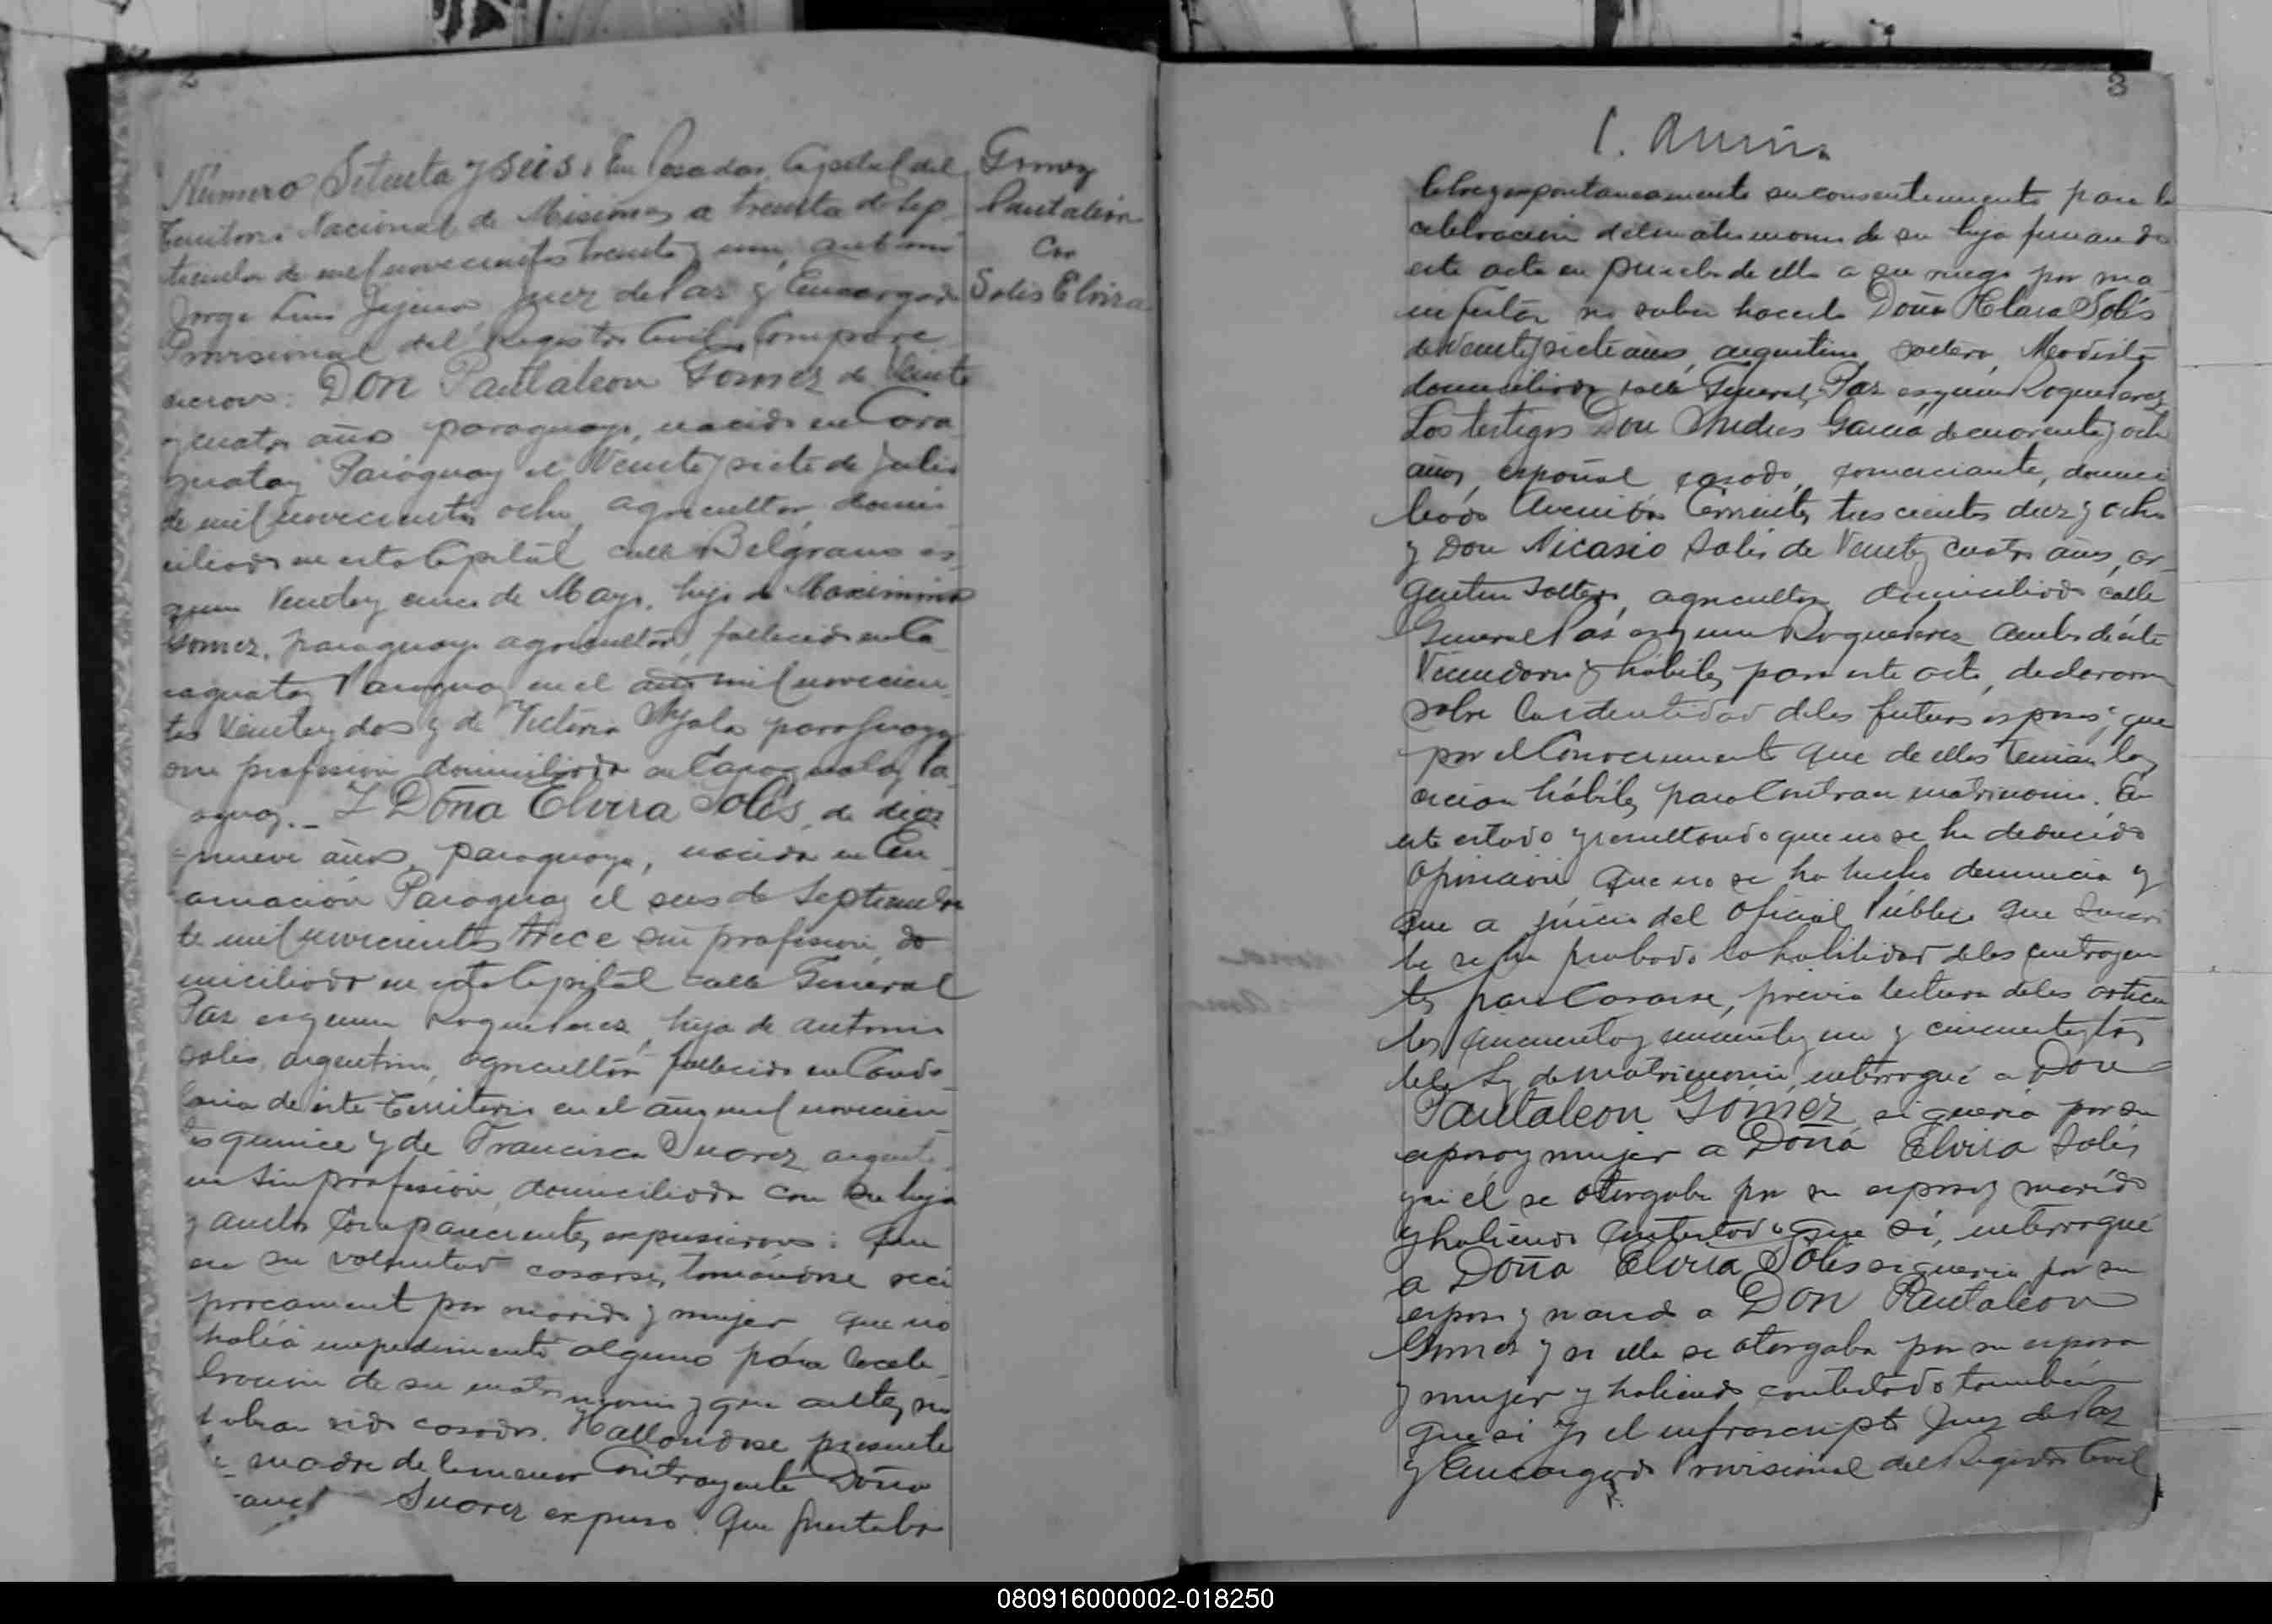 2
Número Setenta y seis. En Posadas, Capital del
Territorio Nacional de Misiones a treinta de Sep
tiembre de mil novecientos treinta y uno, ante mi
Jorge Luis Jejena Juez de Paz y Encargado
Provisional del Registro Civil, Compare
cieron: Don Pantaleon Gomez de Veinte
y cuatro años paraguayo, nacido en Cara
guatay Paraguay el Veinte y siete de Julio
de mil novecientos ocho, agricultor, domi
ciliado en esta Capital calle Belgrano es
quina Veinte y cinco de Mayo, hijo de Maximino
Gomez, paraguayo agricultor, fallecido en Ca
raguatay Paraguay en el año mil novecien
tos Veinte y dos y de Victoria Ayala paraguaya
sin profesión domiciliada en Caraguatay Pa
raguay._ Y Doña Elvira Solis, de diez
y nueve años, paraguaya, nacida en En
carnación Paraguay el seis de Septiembre
de mil novecientos trece sin profesión, do
miciliada en esta Capital calle General
Paz esquina Roque Perez, hija de Antonio
Solis, argentino, agricultor fallecido en Cande
laria de este Territorio en el año mil novecien
tos quince y de Francisca Suarez argenti
na sin profesión, domiciliada con su hija
y ambos Comparecientes expusieron: Que
era su voluntad casarse, tomándose reci
procamente por marido y mujer que no
había impedimento alguno para la cele
bración de su matrimonio y que antes no
habian sido casados. Hallandose presente
la madre de la menor Contrayente Doña
Suarez expuso: Que prestaba
Gomez
Pantaleón
Con
Solis Elvira
3
libre y espontaneamente su consentimiento para la
celebración del matrimonio de su hija firmando
este acta en prueba de ello a su ruego por ma
nifestar no saber hacerlo Doña Clara Solis
de Veinte y siete años, argentina, soltera, Modista
domiciliada calle General Paz esquina Roque Perez
Los testigos Don Andres Garcia de cuarenta y ocho
años, español, casado, comerciante, domici
liado Avenida Corrientes trescientos diez y ocho
y Don Nicasio Solis de Veinte y cuatro años, ar
gentino soltero, agricultor, domiciliado calle
General Paz esquina Roque Perez ambos de este
Vecindario y hábiles para este acto, declararon
sobre la identidad de los futuros esposos, que
por el Conocimiento que de ellos tenian los
creian hábiles para Contraer matrimonio. En
este estado y resultando que no se ha deducido
oposición, que no se ha hecho denuncia y
que a juicio del oficial Público que suscri
be se ha probado la habilidad de los contrayen
tes para Casarse, previa lectura de los articu
los cincuenta, cincuenta y uno y cincuenta y tres
de la Ley de Matrimonio, interrogué a Don
Pantaleon Gómez si queria por su
esposa y mujer a Doña Elvira Solis
y si él se otorgaba por su esposo y marido
y habiendo contestado que si, interrogué
a Doña Elvira Solis si queria por su
esposo y marido a Don Pantaleon
Gomez y si ella se otorgaba por su esposa
y mujer y habiendo contestado tambien
que si Yo el infrascripto Juez de Paz
y Encargado Provisional del Registro Civil
080916000002-018250